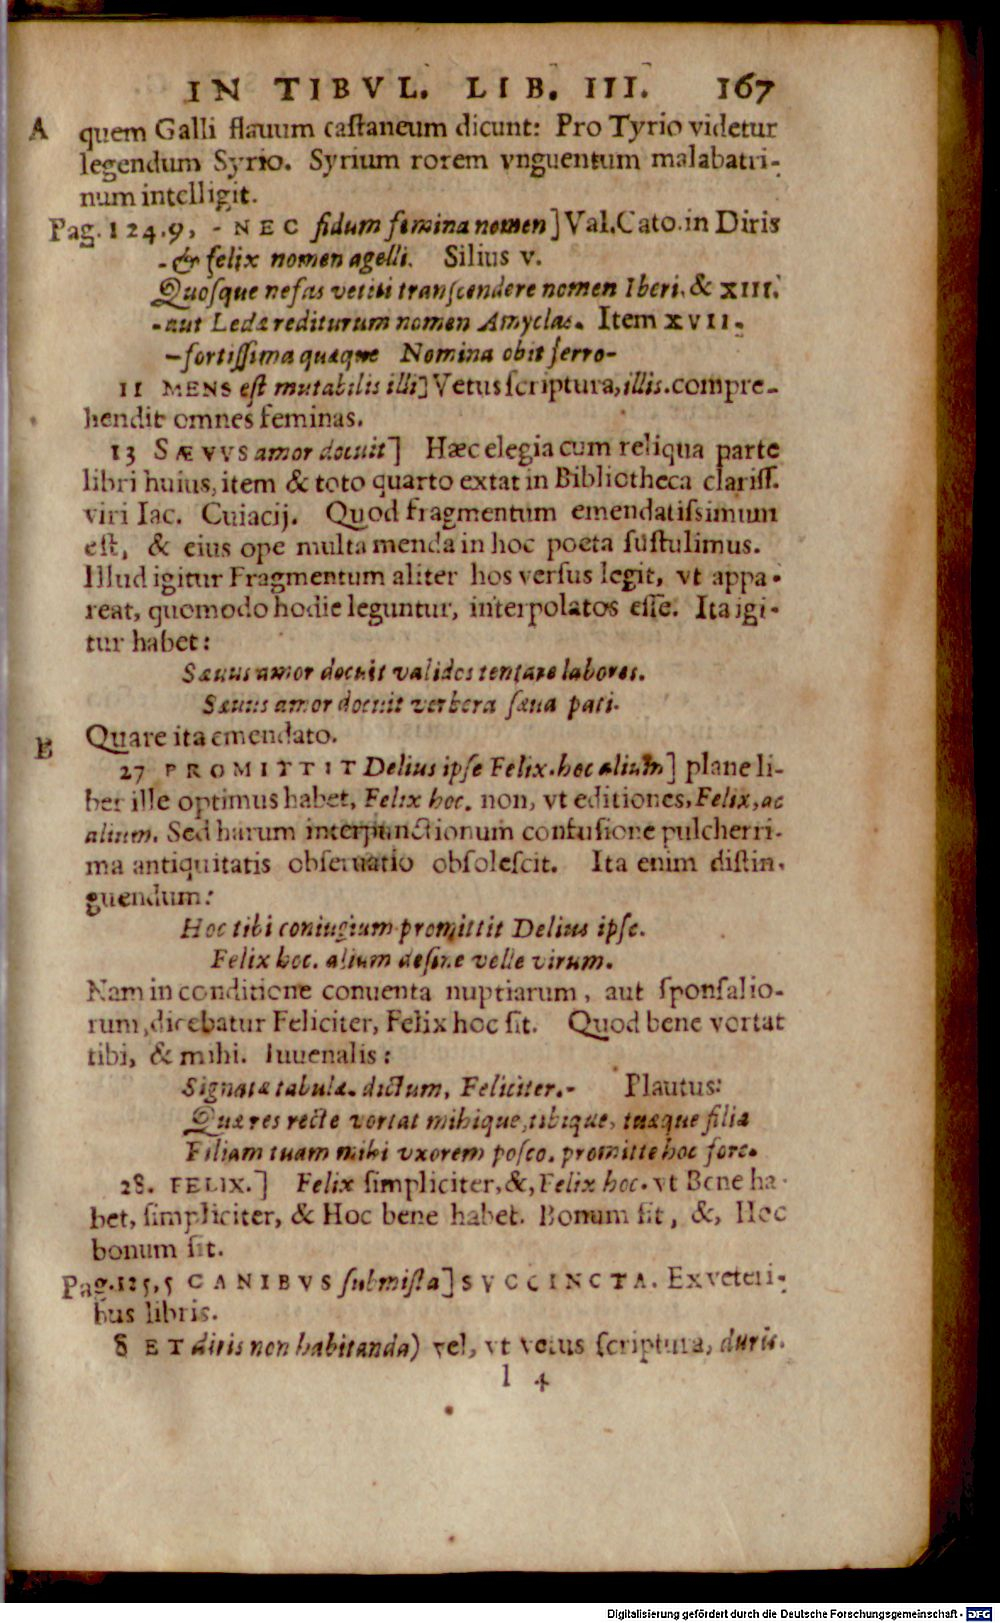 IN TIBVL. LIB. III. 167
A quem Galli flauum castaneum dicunt: Pro Tyrio videtur
legendum Syrio. Syrium rorem vnguentum malabatri-
num intelligit.
Pag. 124.9, - NEC fidum femina nomen] Val. Cato. in Diris
- & felix nomen agelli. Silius v.
Quosque nefas vetiti transcendere nomen Iberi. & XIII.
- aut Ledæ rediturum nomen Amyclas. Item XVII.
- fortissima quæque Nomina obit ferro-
11 MENS est mutabilis illi] Vetus scriptura, illis. compre-
hendit omnes feminas.
13 SÆVVS amor docuit] Hæc elegia cum reliqua parte
libri huius, item & toto quarto extat in Bibliotheca clariss.
viri Iac. Cuiacij. Quod fragmentum emendatissimum
est, & eius ope multa menda in hoc poeta sustulimus.
Illud igitur Fragmentum aliter hos versus legit, vt appa-
reat, quomodo hodie leguntur, interpolatos esse. Ita igi-
tur habet:
Sæuus amor docuit validos tentare labores.
Sæuus amor docuit verbera sæua pati.
B Quare ita emendato.
27 PROMITTIT Delius ipse Felix. hoc alium] plane li-
ber ille optimus habet, Felix hoc. non, vt editiones, Felix, ac
alium. Sed harum interpunctionum confusione pulcherri-
ma antiquitatis obseruatio obsolescit. Ita enim distin-
guendum:
Hoc tibi coniugium promittit Delius ipse.
Felix hoc. alium desine velle virum.
Nam in conditione conuenta nuptiarum, aut sponsalio-
rum, dicebatur Feliciter, Felix hoc sit. Quod bene vortat
tibi, & mihi. Iuuenalis:
Signatæ tabulæ. dictum, Feliciter.- Plautus:
Quæ res recte vortat mihique, tibique, tuæque filiæ
Filiam tuam mihi vxorem posco. promitte hoc fore.
28. FELIX.] Felix simpliciter, &, Felix hoc. vt Bene ha-
bet, simpliciter, & Hoc bene habet. Bonum sit, &, Hoc
bonum sit.
Pag. 125, 5 CANIBVS submista] SVCCINCTA. Ex veteri-
bus libris.
8 ET ditis non habitanda) vel, vt vetus scriptura, duris.
l 4
Digitalisierung gefördert durch die Deutsche Forschungsgemeinschaft - DFG